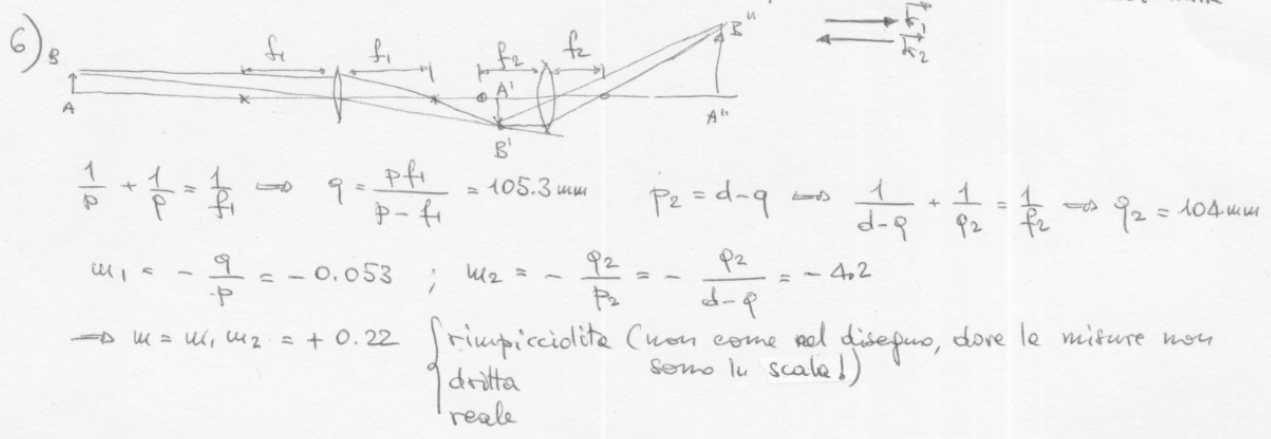 6)
B f₁ f₁ f₂ f₂ B" k₁
k₂
A A' A"
B'
1/p + 1/q = 1/f₁ ⇒ q = pf₁/(p - f₁) = 105.3 mm p₂ = d-q ⇒ 1/(d-q) + 1/q₂ = 1/f₂ ⇒ q₂ = 104 mm
m₁ = - q/p = - 0.053 ; m₂ = - q₂/p₂ = - q₂/(d-q) = - 4.2
⇒ m = m₁ m₂ = + 0.22 { rimpicciolita (non come nel disegno, dove le misure non
sono in scala!)
dritta
reale